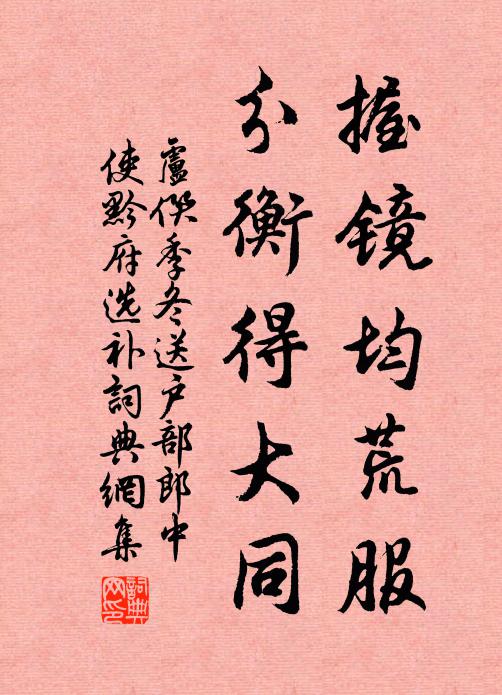 握镜均荒服
分衡得大同
盧僎季冬送户部郎中
使黔府选补詞典網集
詞典網印